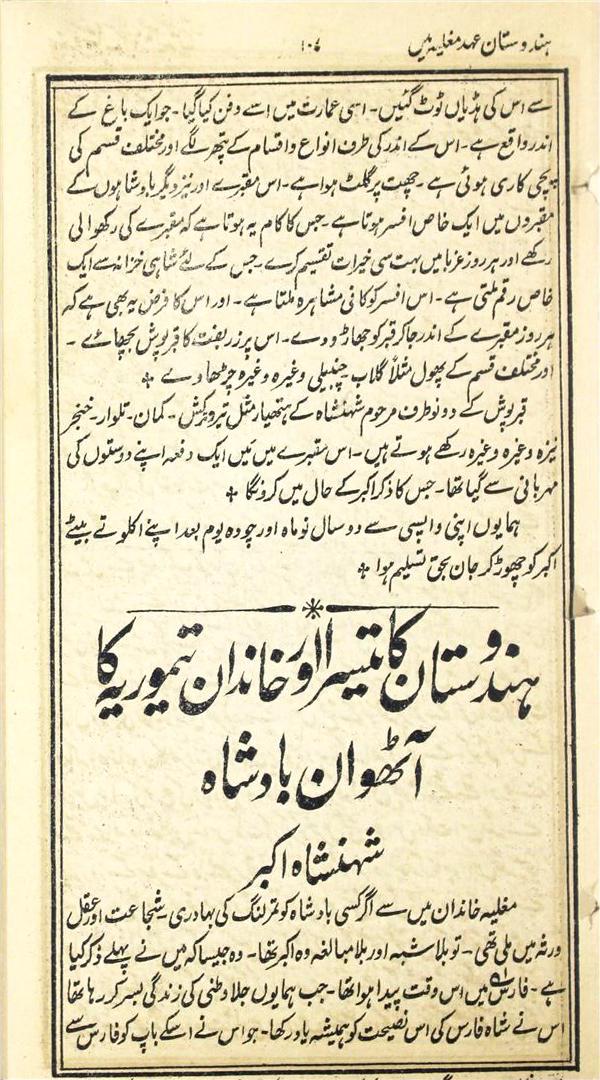 ہندوستان عہد مغلیہ میں
۱۰۷
سے اس کی ہڈیاں ٹوٹ گئیں۔ اسی عمارت میں اسے دفن کیا گیا۔ جو ایک باغ کے
اندر واقع ہے۔ اس کے اندر کی طرف انواع و اقسام کے پتھر لگے اور مختلف قسم کی
پچی کاری ہوئی ہے۔ چھت پر گلٹ ہوا ہے۔ اس مقبرے اور نیز دیگر بادشاہوں کے
مقبروں میں ایک خاص افسر ہوتا ہے۔ جس کا کام یہ ہوتا ہے کہ مقبرے کی رکھوالی
رکھے اور ہر روز غربا میں بہت سی خیرات تقسیم کرے۔ جس کے لئے شاہی خزانہ سے ایک
خاص رقم ملتی ہے۔ اس افسر کو کافی مشاہرہ ملتا ہے۔ اور اس کا فرض یہ بھی ہے کہ
ہر روز مقبرے کے اندر جا کر قبر کو جھاڑو دے۔ اس پر زربفت کا قبر پوش بچھائے۔
اور مختلف قسم کے پھول مثلاً گلاب چنبیلی وغیرہ وغیرہ چڑھا دے ؞
قبر پوش کے دونو طرف مرحوم شہنشاہ کے ہتھیار مثل تیر و ترکش۔ کمان۔ تلوار۔ خنجر
نیزہ وغیرہ وغیرہ رکھے ہوتے ہیں۔ اس مقبرے میں میں ایک دفعہ اپنے دوستوں کی
مہربانی سے گیا تھا۔ جس کا ذکر اکبر کے حال میں کرونگا ؞
ہمایوں اپنی واپسی سے دو سال نو ماہ اور چودہ یوم بعد اپنے اکلوتے بیٹے
اکبر کو چھوڑ کر جان بحق تسلیم ہوا ؞
ہندوستان کا تیسرا اور خاندان تیموریہ کا
آٹھواں بادشاہ
شہنشاہ اکبر
مغلیہ خاندان میں سے اگر کسی بادشاہ کو تمرلنگ کی بہادری شجاعت اور عقل
ورثہ میں ملی تھی۔ تو بلاشبہ اور بلامبالغہ وہ اکبر تھا۔ وہ جیسا کہ میں نے پہلے ذکر کیا
ہے۔ فارس میں اس وقت پیدا ہوا تھا۔ جب ہمایوں جلاوطنی کی زندگی بسر کر رہا تھا
اس نے شاہ فارس کی اس نصیحت کو ہمیشہ یاد رکھا۔ جو اس نے اسکے باپ کو فارس سے